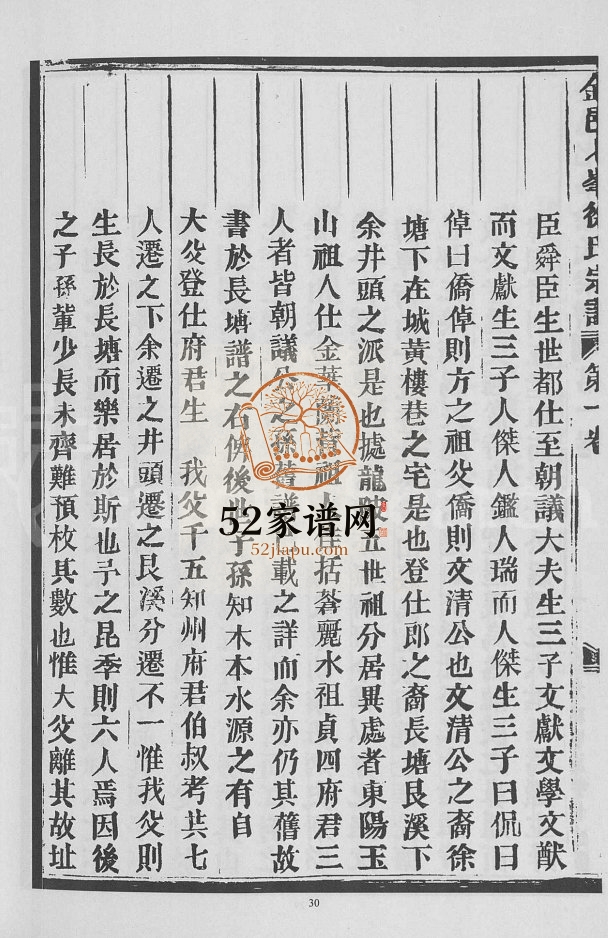 氏宗譜 第一卷
臣舜臣生世都仕至朝議大夫生三子文獻文學文猷
而文獻生三子人傑人鑑人瑞而人傑生三子曰侃曰
倬曰僑倬則方之祖父僑則文清公也文清公之裔徐
塘下在城黃樓巷之宅是也登仕郎之裔長塘艮溪下
余井頭之派是也據龍陂五世祖分居異處者東陽玉
山祖人仕金華祖人括蒼麗水祖貞四府君三
人者皆朝議公之孫舊譜載之詳而余亦仍其舊故
書於長塘譜之右俾後世子孫知木本水源之有自
大父登仕府君生 我父千五知州府君伯叔考共七
人遷之下余遷之井頭遷之艮溪分遷不一惟我父則
生長於長塘而樂居於斯也予之昆季則六人焉因後
之子孫輩少長未齊難預枚其數也惟大父離其故址
52家谱网
52jiapu.com
30